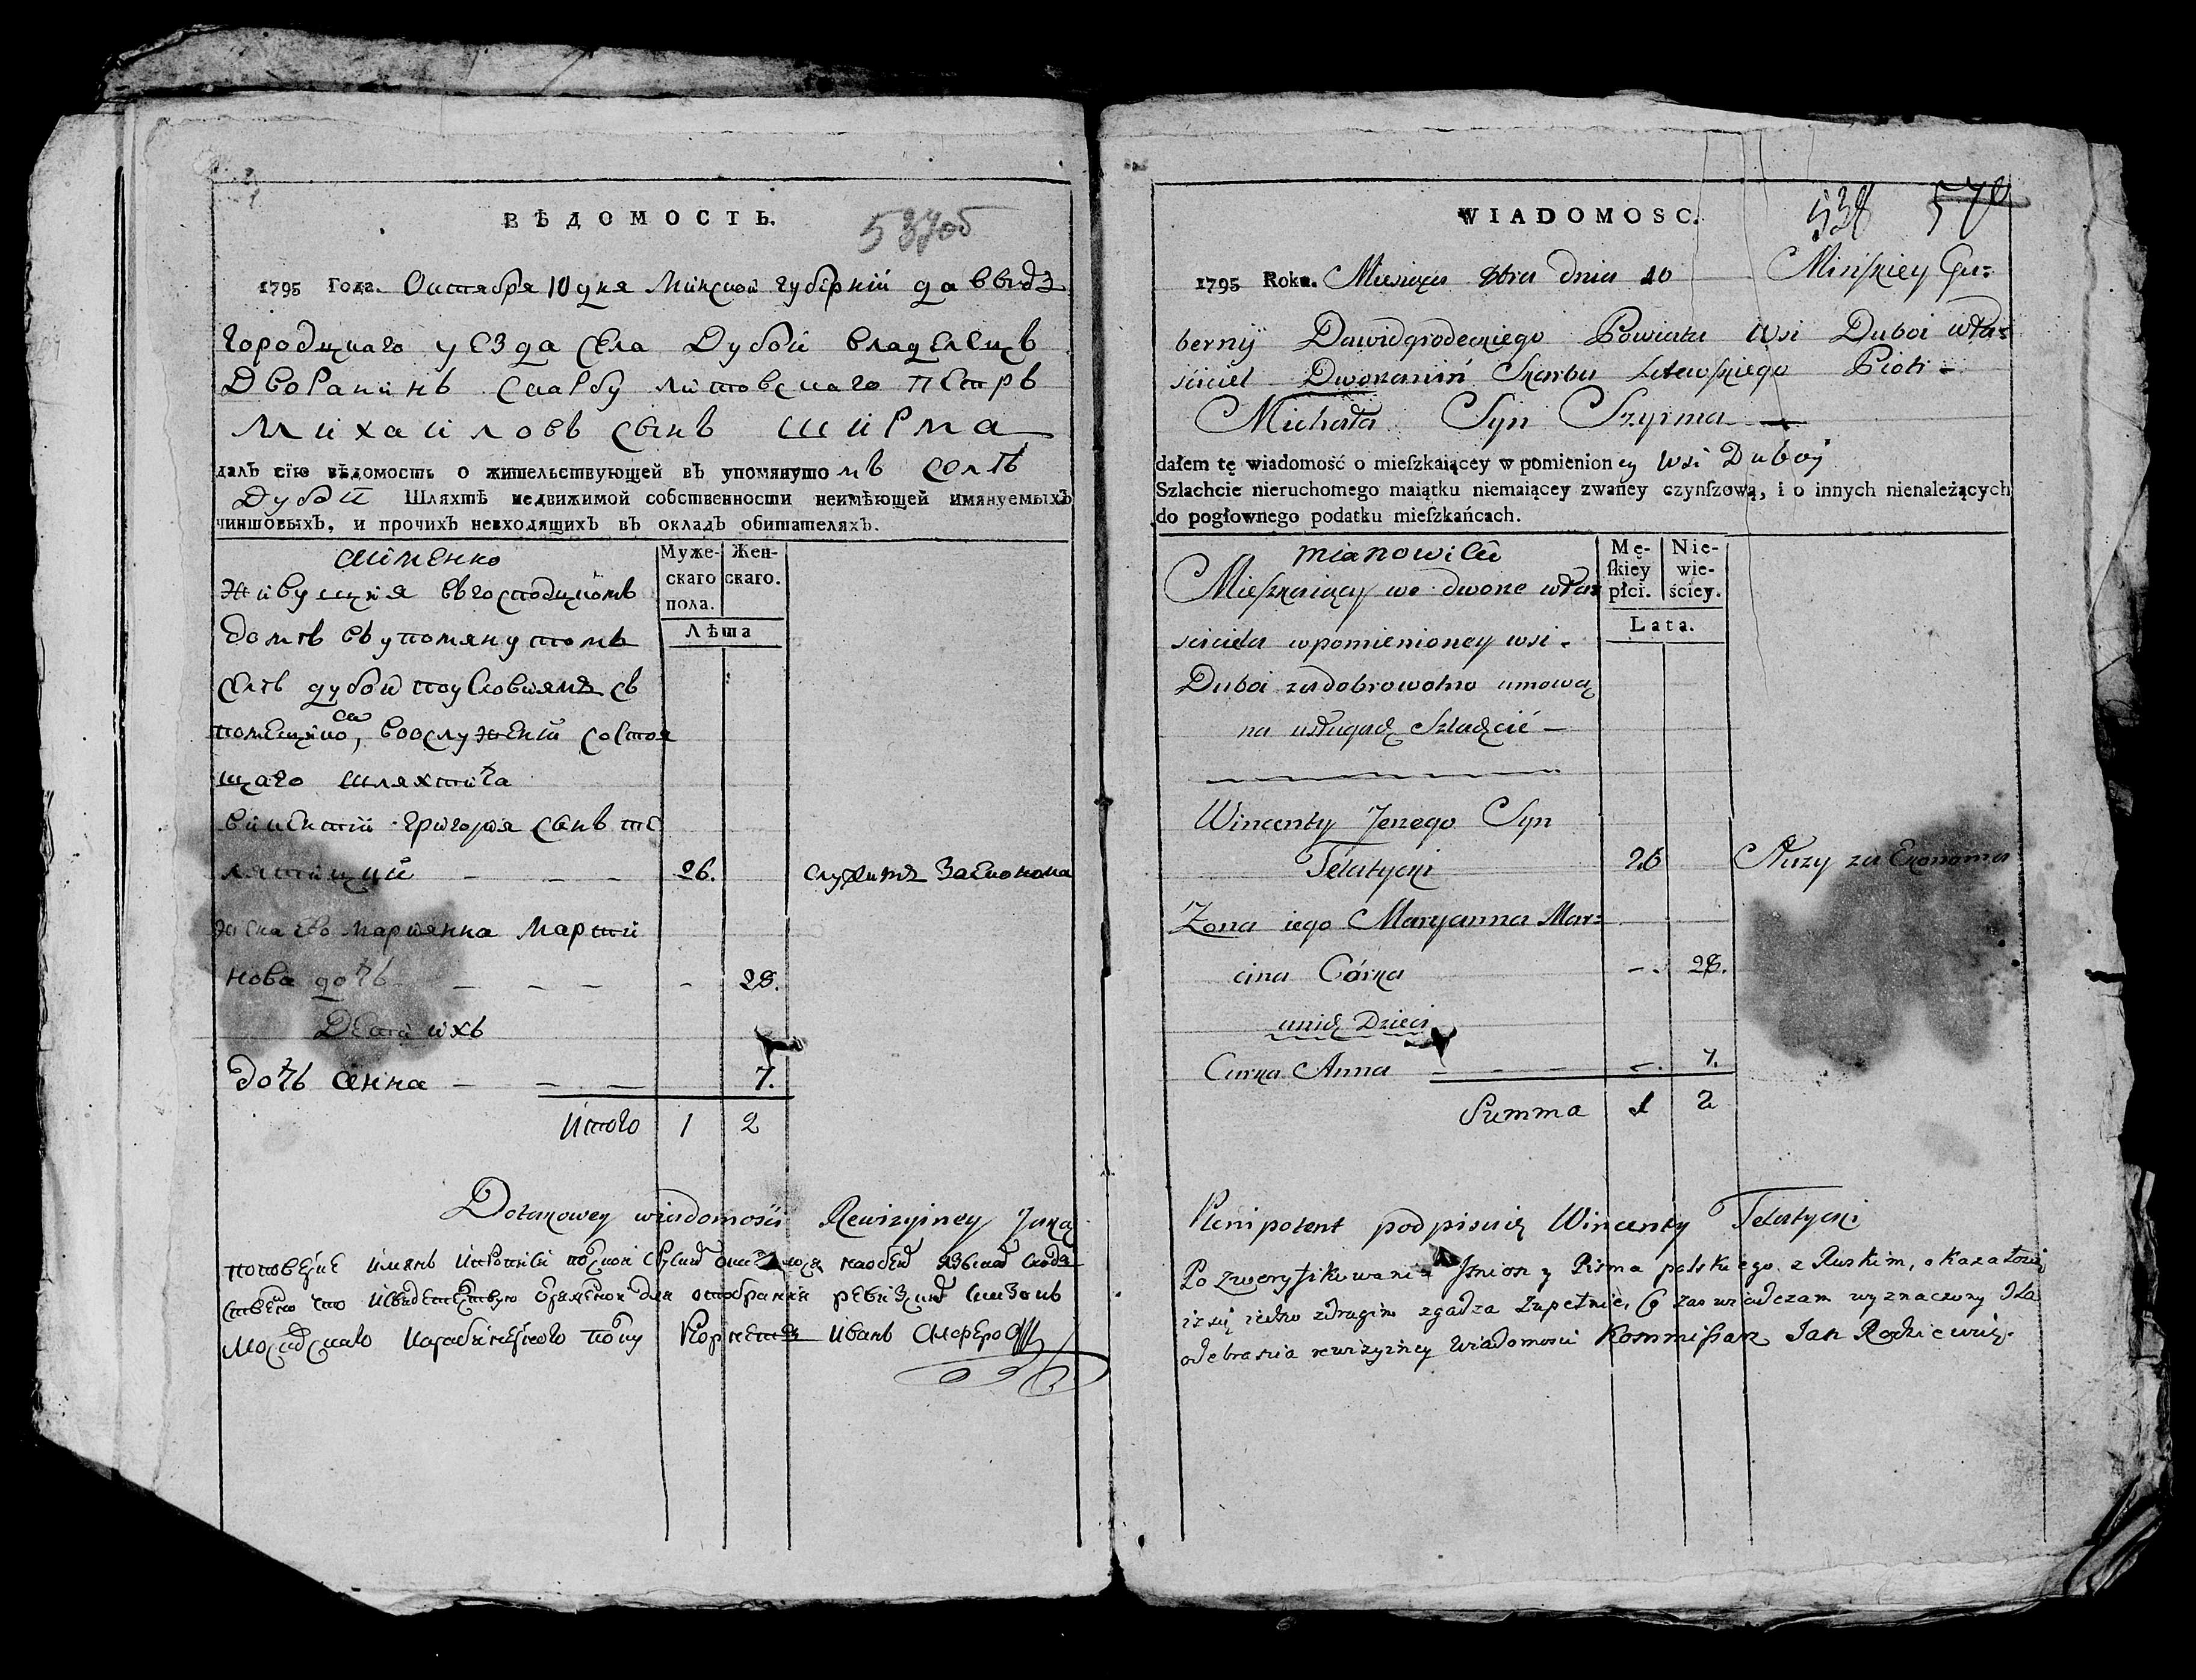 ВѢДОМОСТЬ.
537об
1795 Года. Октября 10 дня Минской губерній давыдъ
городцкаго уезда села Дубои владелецъ
Дворанинъ скарбу литовскаго Петръ
Михаиловъ сынъ Ширма
далъ сїю вѣдомость о жительствующей въ упомянуто мъ селѣ
Дубои Шляхтѣ недвижимой собственности неимѣющей имянуемыхъ
чиншовыхъ, и прочихъ невходящихъ въ окладъ обитателяхъ.
аименно
Муже-
скаго
пола.
Жен-
скаго.
Лѣта
живущия въ господцкомъ
домѣ въ упомянутомъ
селѣ дубои по условиямъ съ
помещико, въ служеніи состоя
ска
щаго шляхтича
викентій григоря сынъ те
лятицкий — — — 26. служитъ за економа
жена его мариянна марти
нова дочь — — — - 28.
Дети ихъ
дочь анна — — — 7.
Итого 1 2
Do takowey wiadomości Rewizyiney Jako
WIADOMOSC.
538 570
1795 Roku. Miesiąca 8bra dnia 10 Mińskiey Gu=
bernij Dawidgrodeckiego Powiatu Wsi Duboi wła=
ściciel Dworzaniń Skarbu Litewskiego Piotr
Michała Syn Szyrma
dałem tę wiadomość o mieſzkaiącey w pomienion ey Wsi Duboy
Szlachcie nieruchomego maiątku niemaiącey zwaney czynſzową, i o innych nienależących
do pogłownego podatku mieſzkańcach.
mianowicie
Mę-
ſkiey
płci.
Nie-
wie-
ściey.
Lata.
Mieszkaiący we dworze wła=
sciciela w pomienioney wsi
Duboi za dobrowolno umową
na usługach Szlachcić —
Wincenty Jerzego Syn
Telatycki 26 Służy za Ekonoma
Żona iego Maryanna Mar=
cina Córka — 28.
u nich Dzieci
Curka Anna — — — 7.
Summa 1 2
Plenipotent podpisuię Wincenty Telatycki
Po zweryfikowaniu Imion y Pisma polskiego z Ruskim, okazało się
iż się iedno z drugim zgadza zupełnie, Co zaswiadczam wyznaczony dla
odebrania rewizyiney Wiadomosci Kommissarz Jan Rodziewicz.